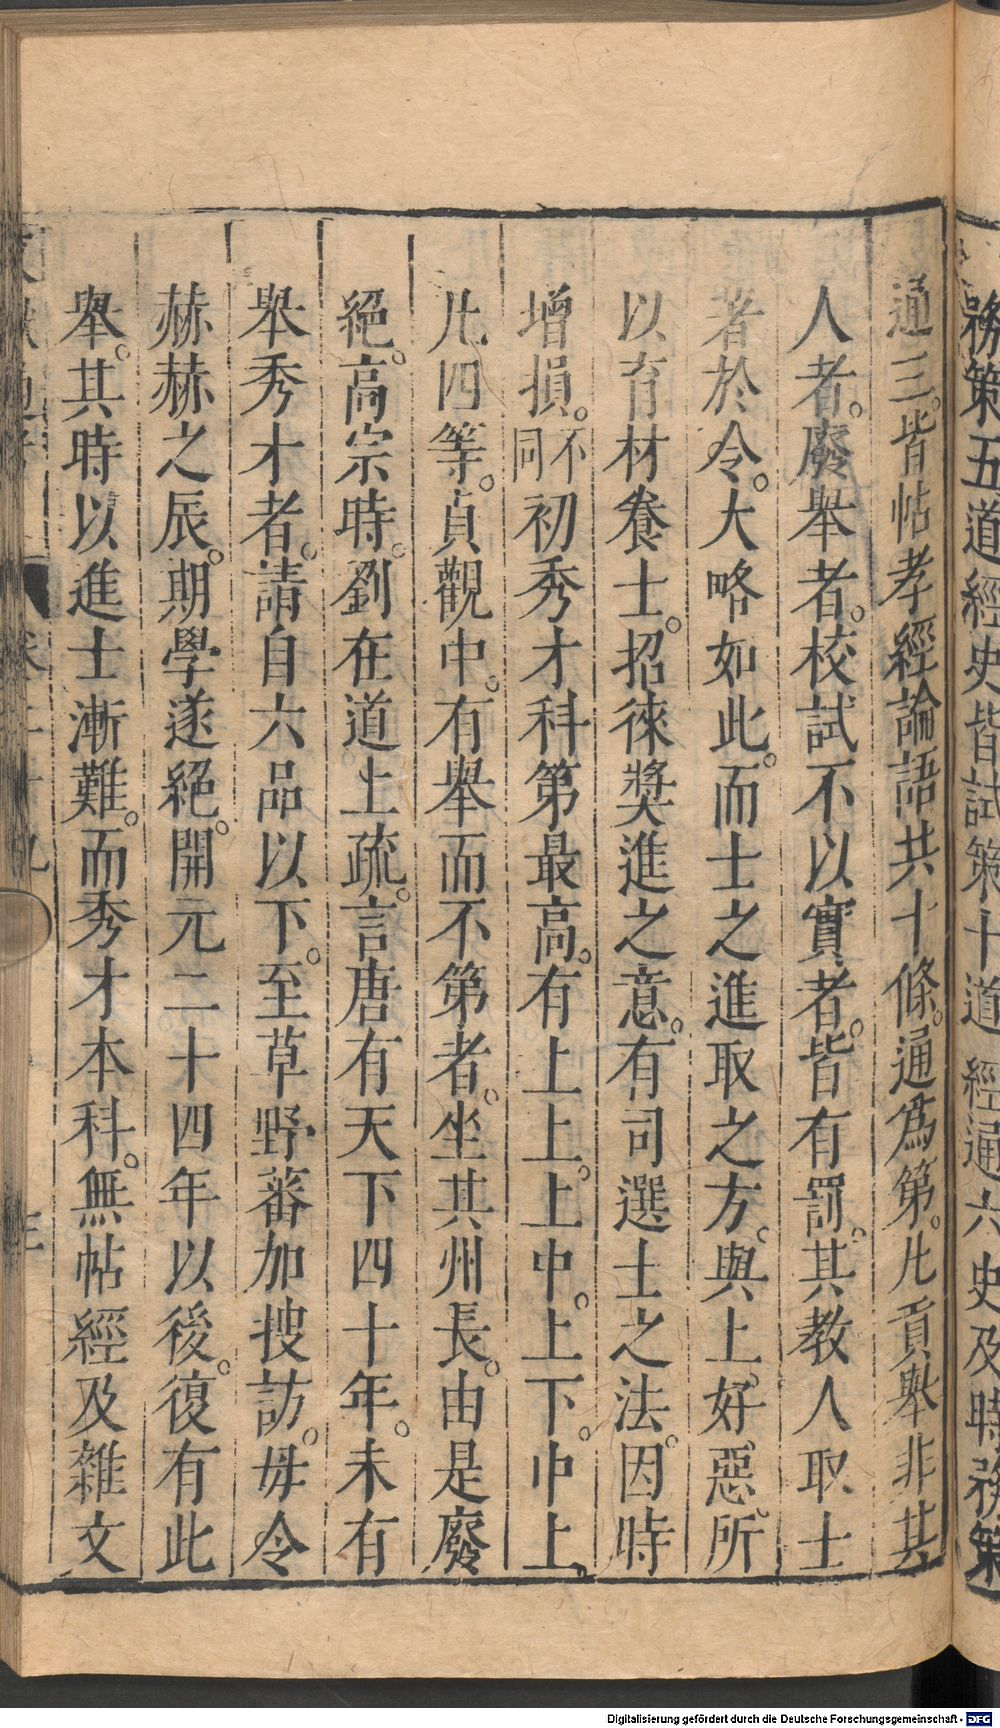 務策五道經史皆試策十道經通六史及時務策
通三。皆帖孝經論語共十條。通爲第。凡貢舉非其
人者。廢舉者。校試不以實者。皆有罰。其教人取士
著於令。大略如此。而士之進取之方。與上好惡。所
以育材養士。招徠獎進之意。有司選士之法。因時
增損。不同初秀才科第最高。有上上。上中。上下。中上。
凡四等。貞觀中。有舉而不第者。坐其州長。由是廢
絕。高宗時。劉在道上疏。言唐有天下四十年。未有
舉秀才者。請自六品以下。至草野審加搜訪。毋令
赫赫之辰。期學遂絕。開元二十四年以後。復有此
舉。其時以進士漸難。而秀才本科。無帖經及雜文
Digitalisierung gefördert durch die Deutsche Forschungsgemeinschaft - DFG